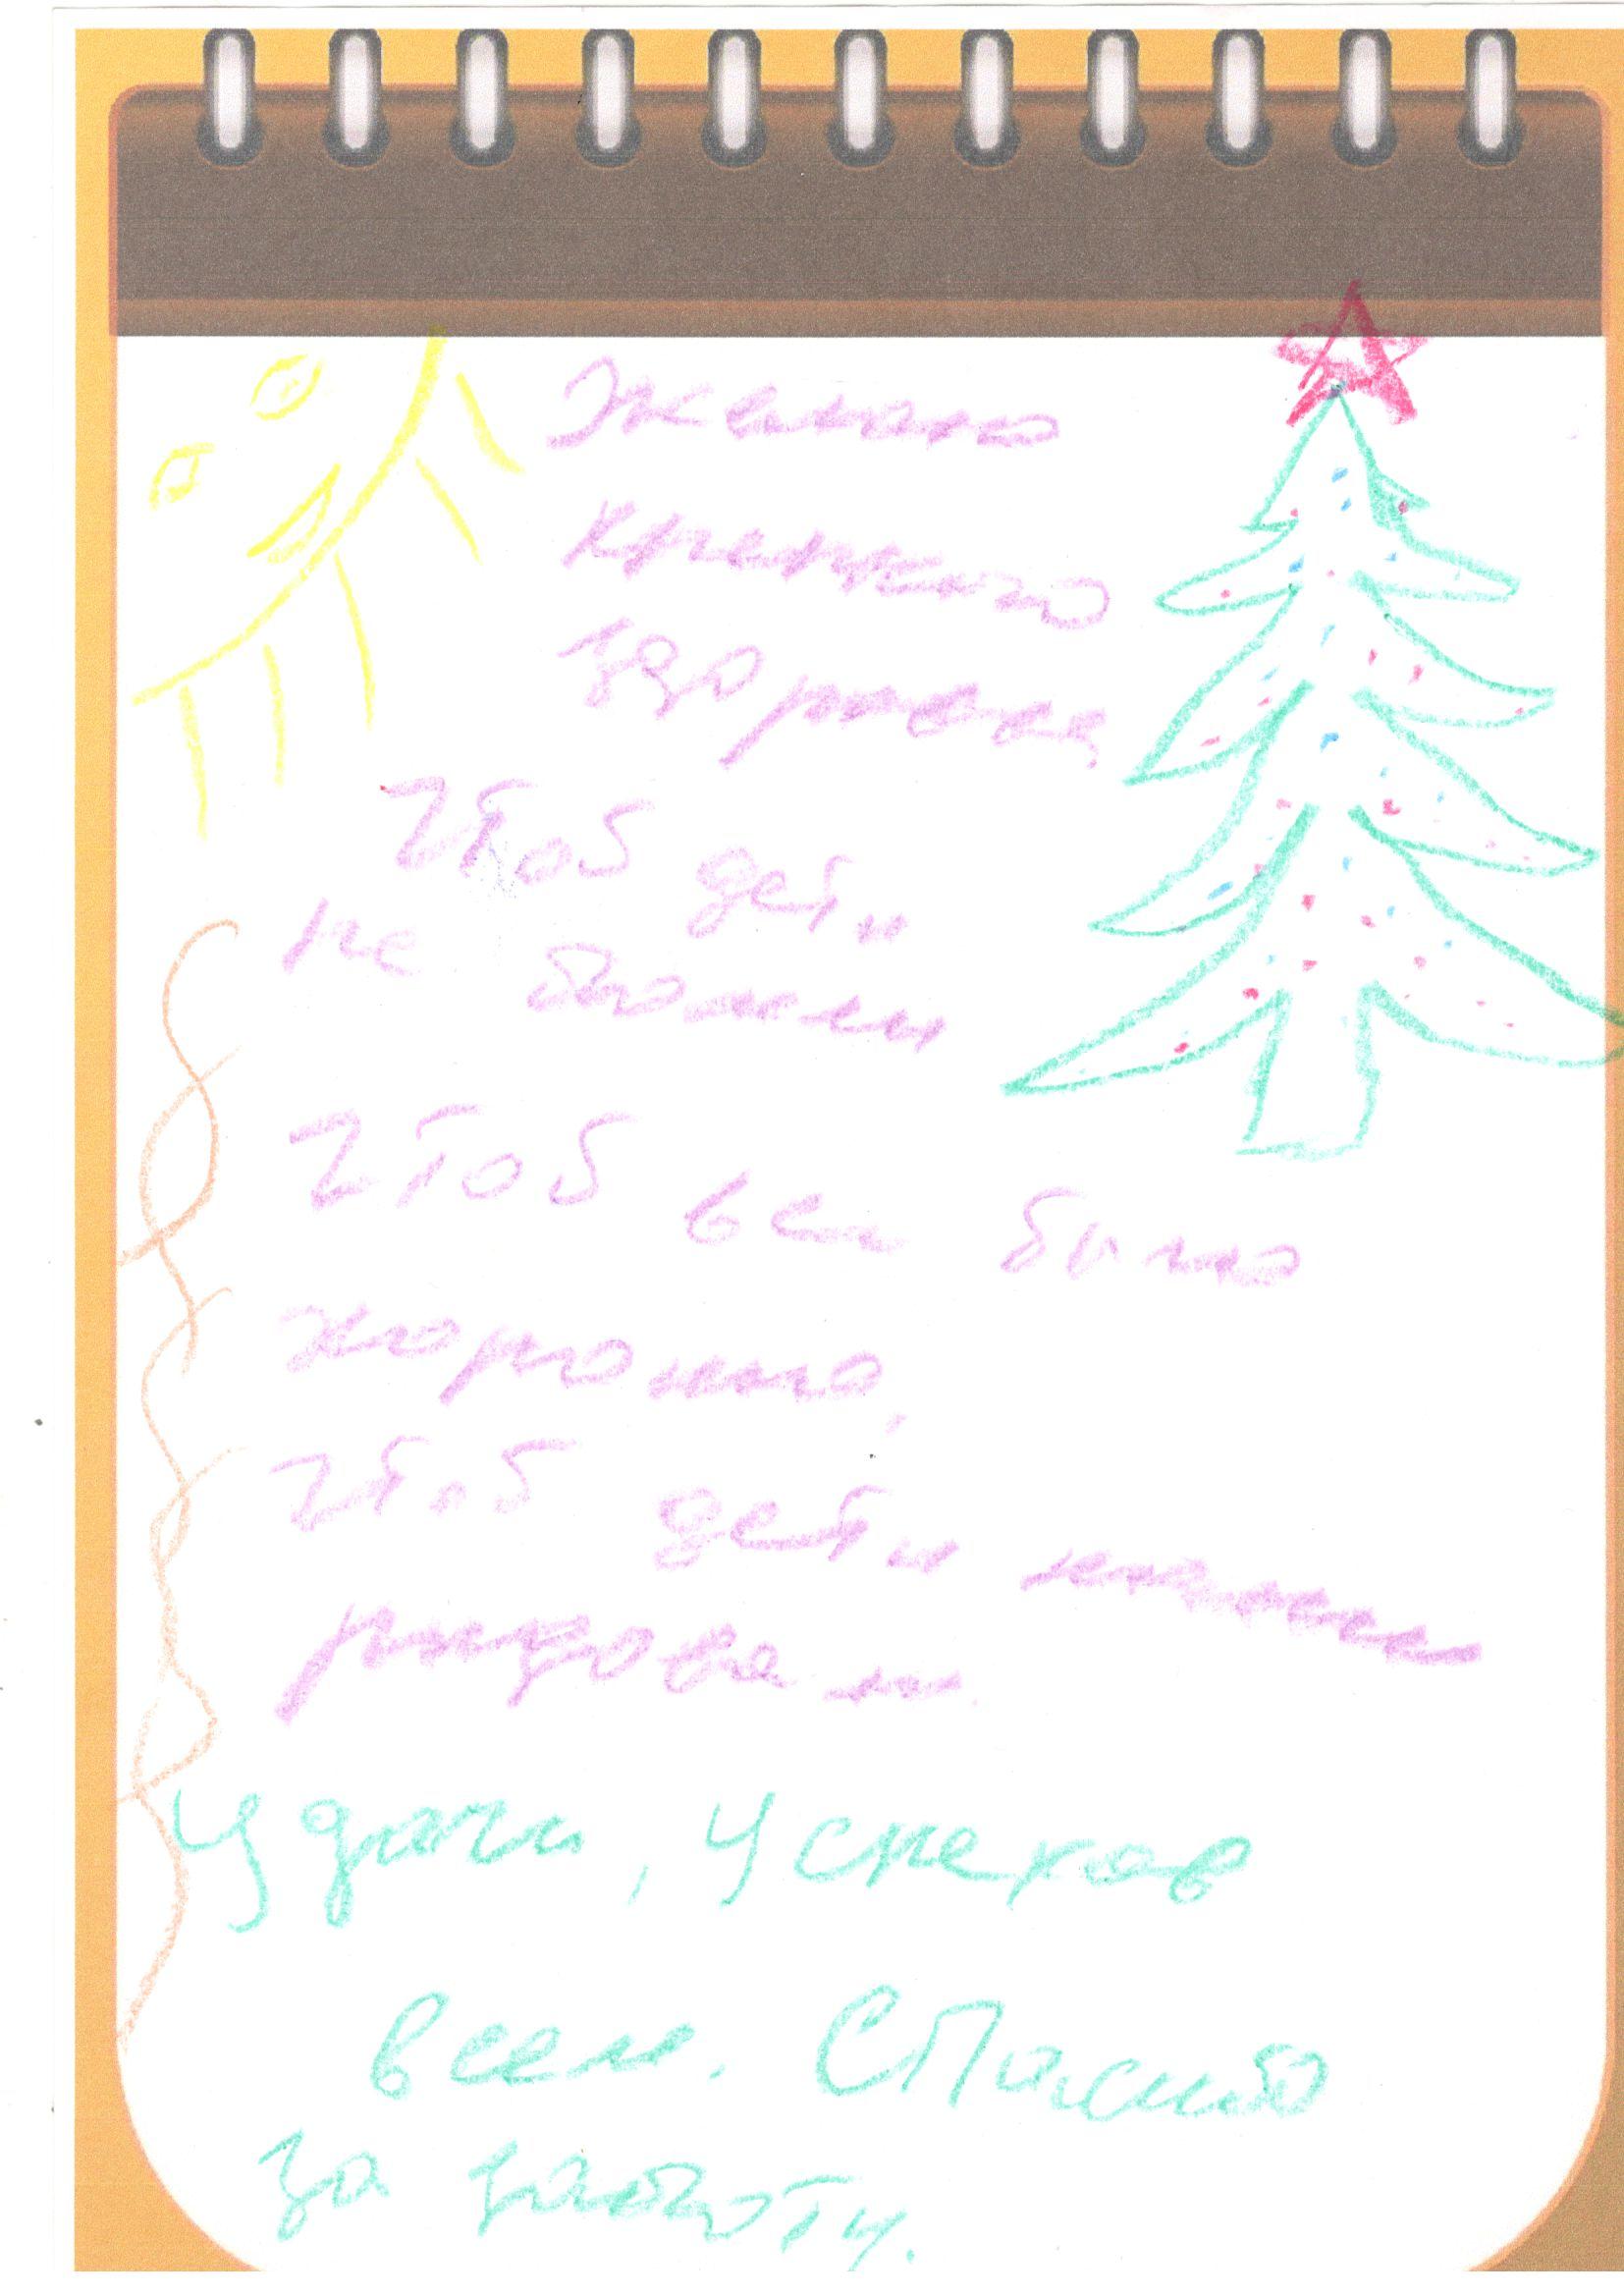 Желаю
крепкого
здоровья,
Чтоб дети
не болели
Чтоб всем было
хорошо,
Чтоб дети
радовали.
Удачи, Успехов
всем. Спасибо
за заботу.